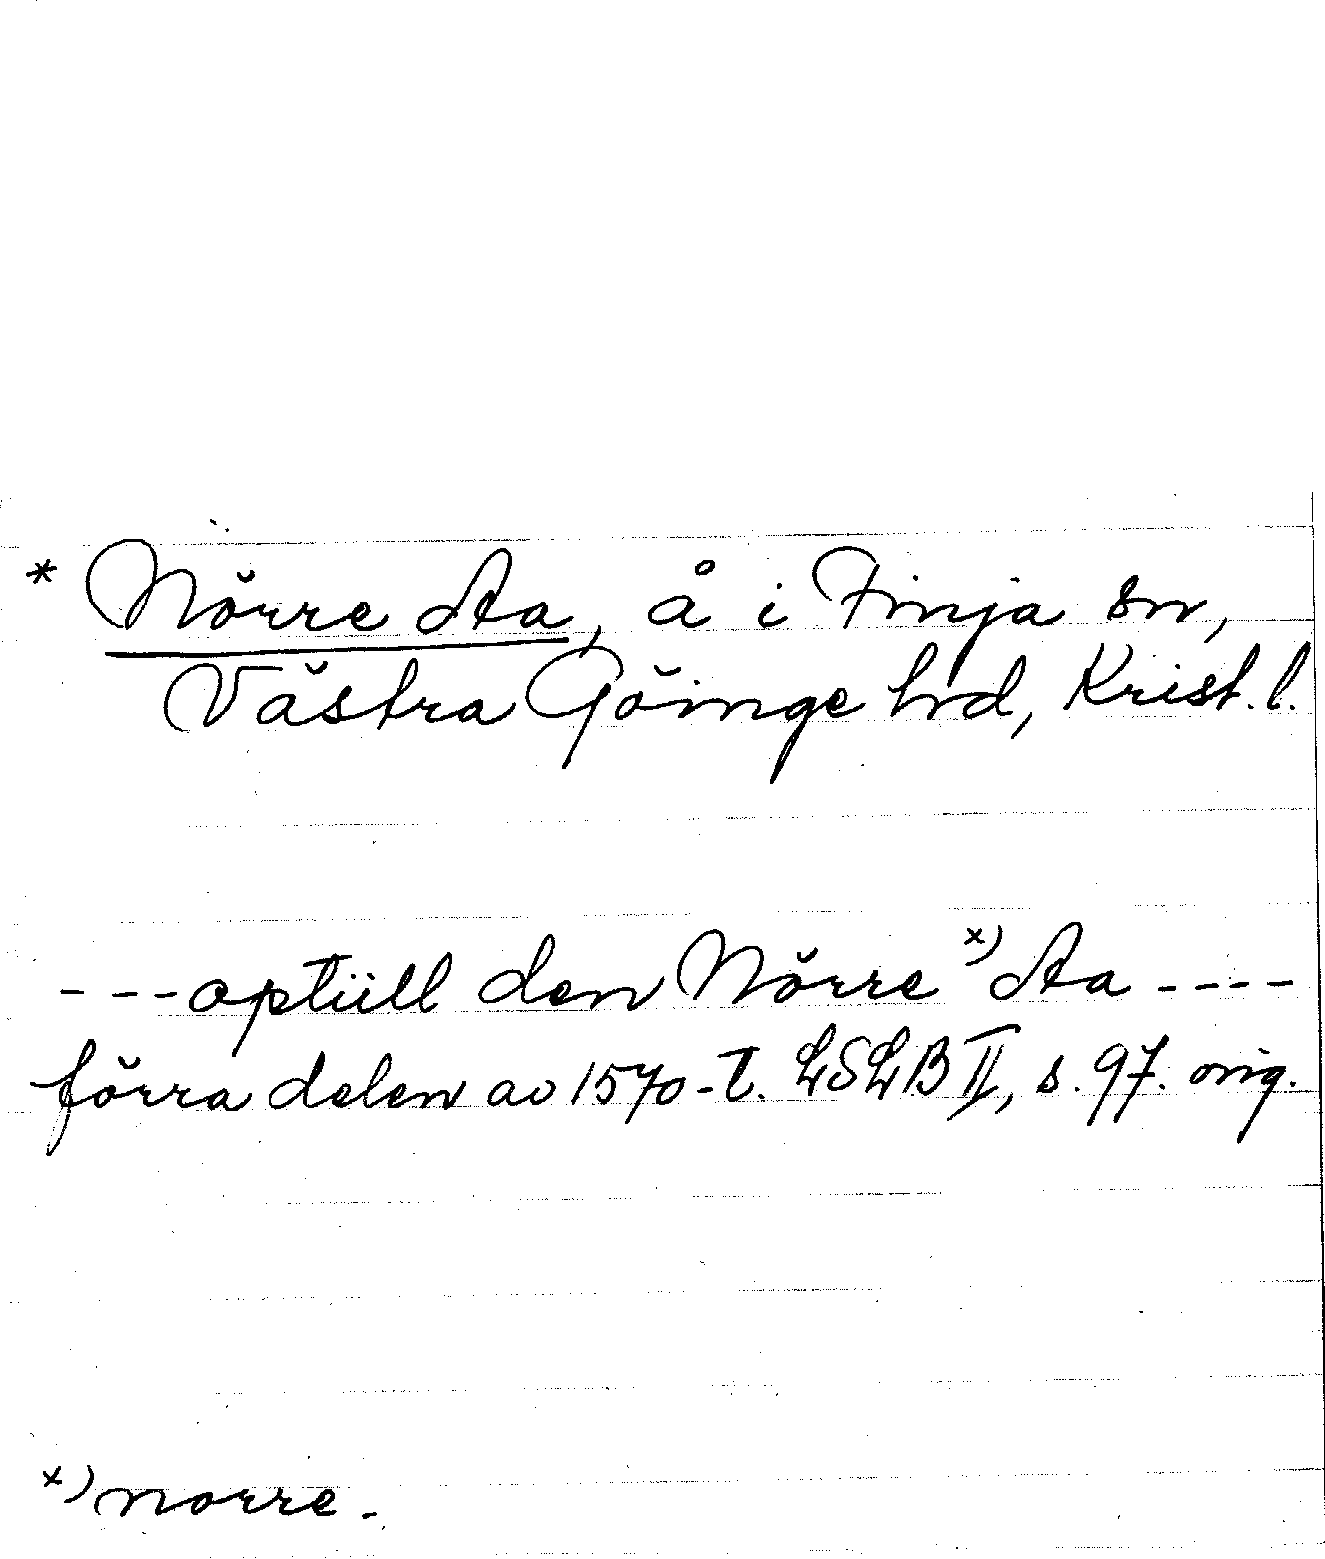 * Nörre Aa, å i Finja sn,
Västra Göinge hd, Krist. l.
---optiill den Nörre x) Aa ----
förra delen av 1570-t. LSLB II, s. 97. orig.
x) norre.